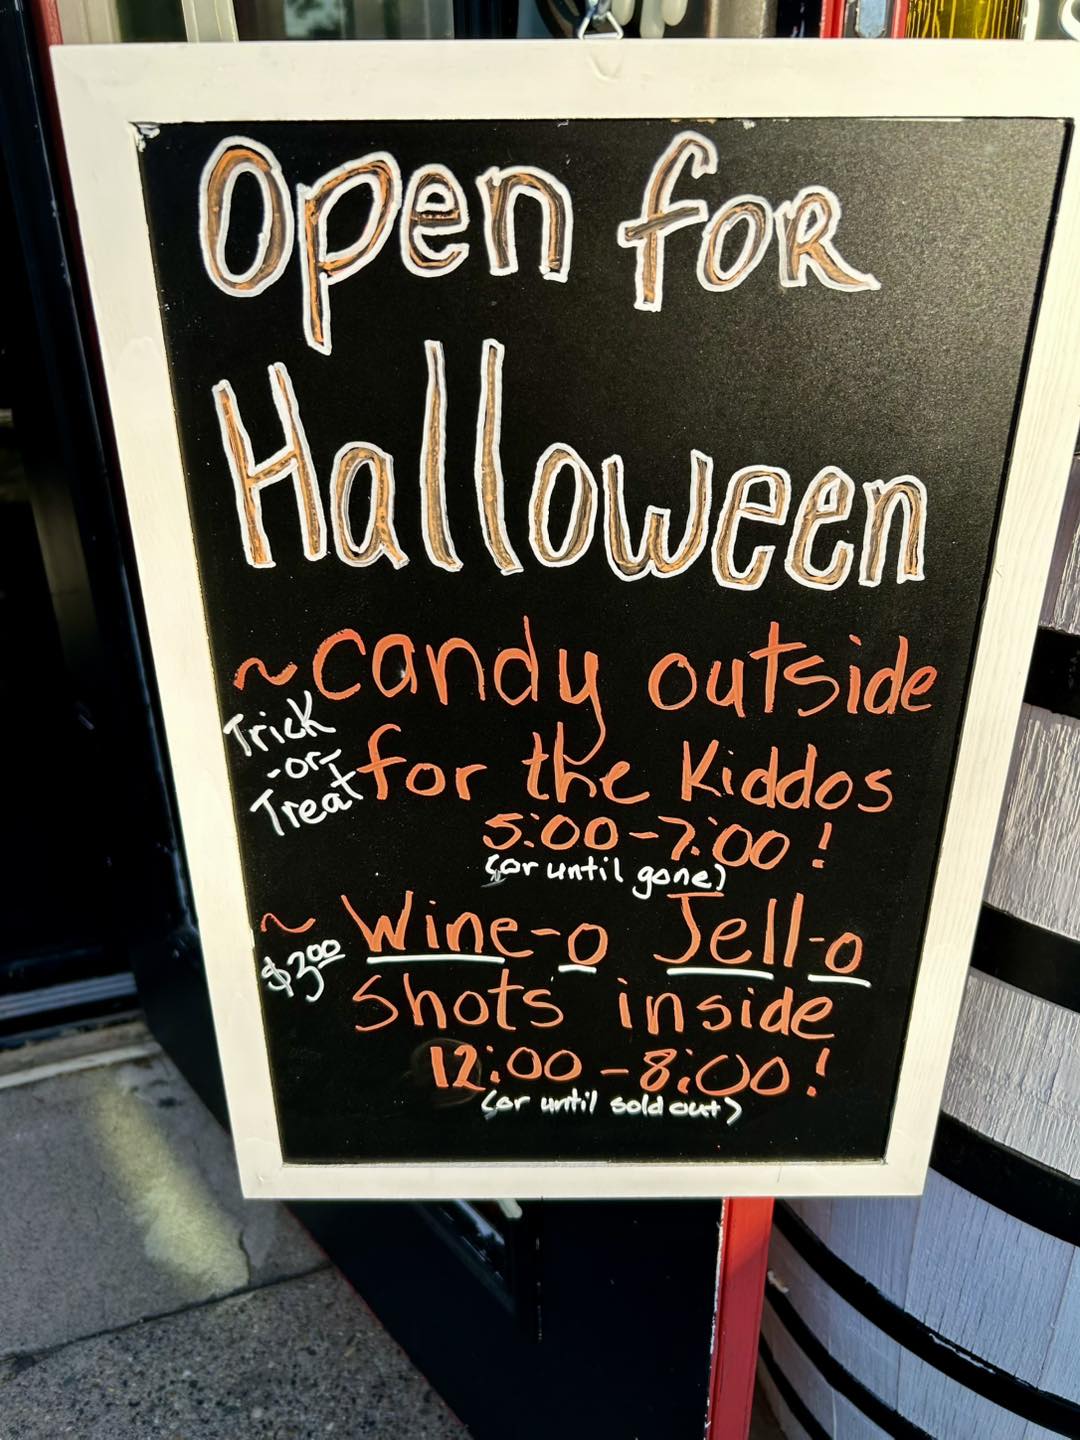 Open for
Halloween
~candy outside
Trick
-or-
Treat
for the Kiddos
5:00-7:00!
(or until gone)
~ Wine-o Jell-o
$3.00
Shots inside
12:00-8:00!
(or until sold out)